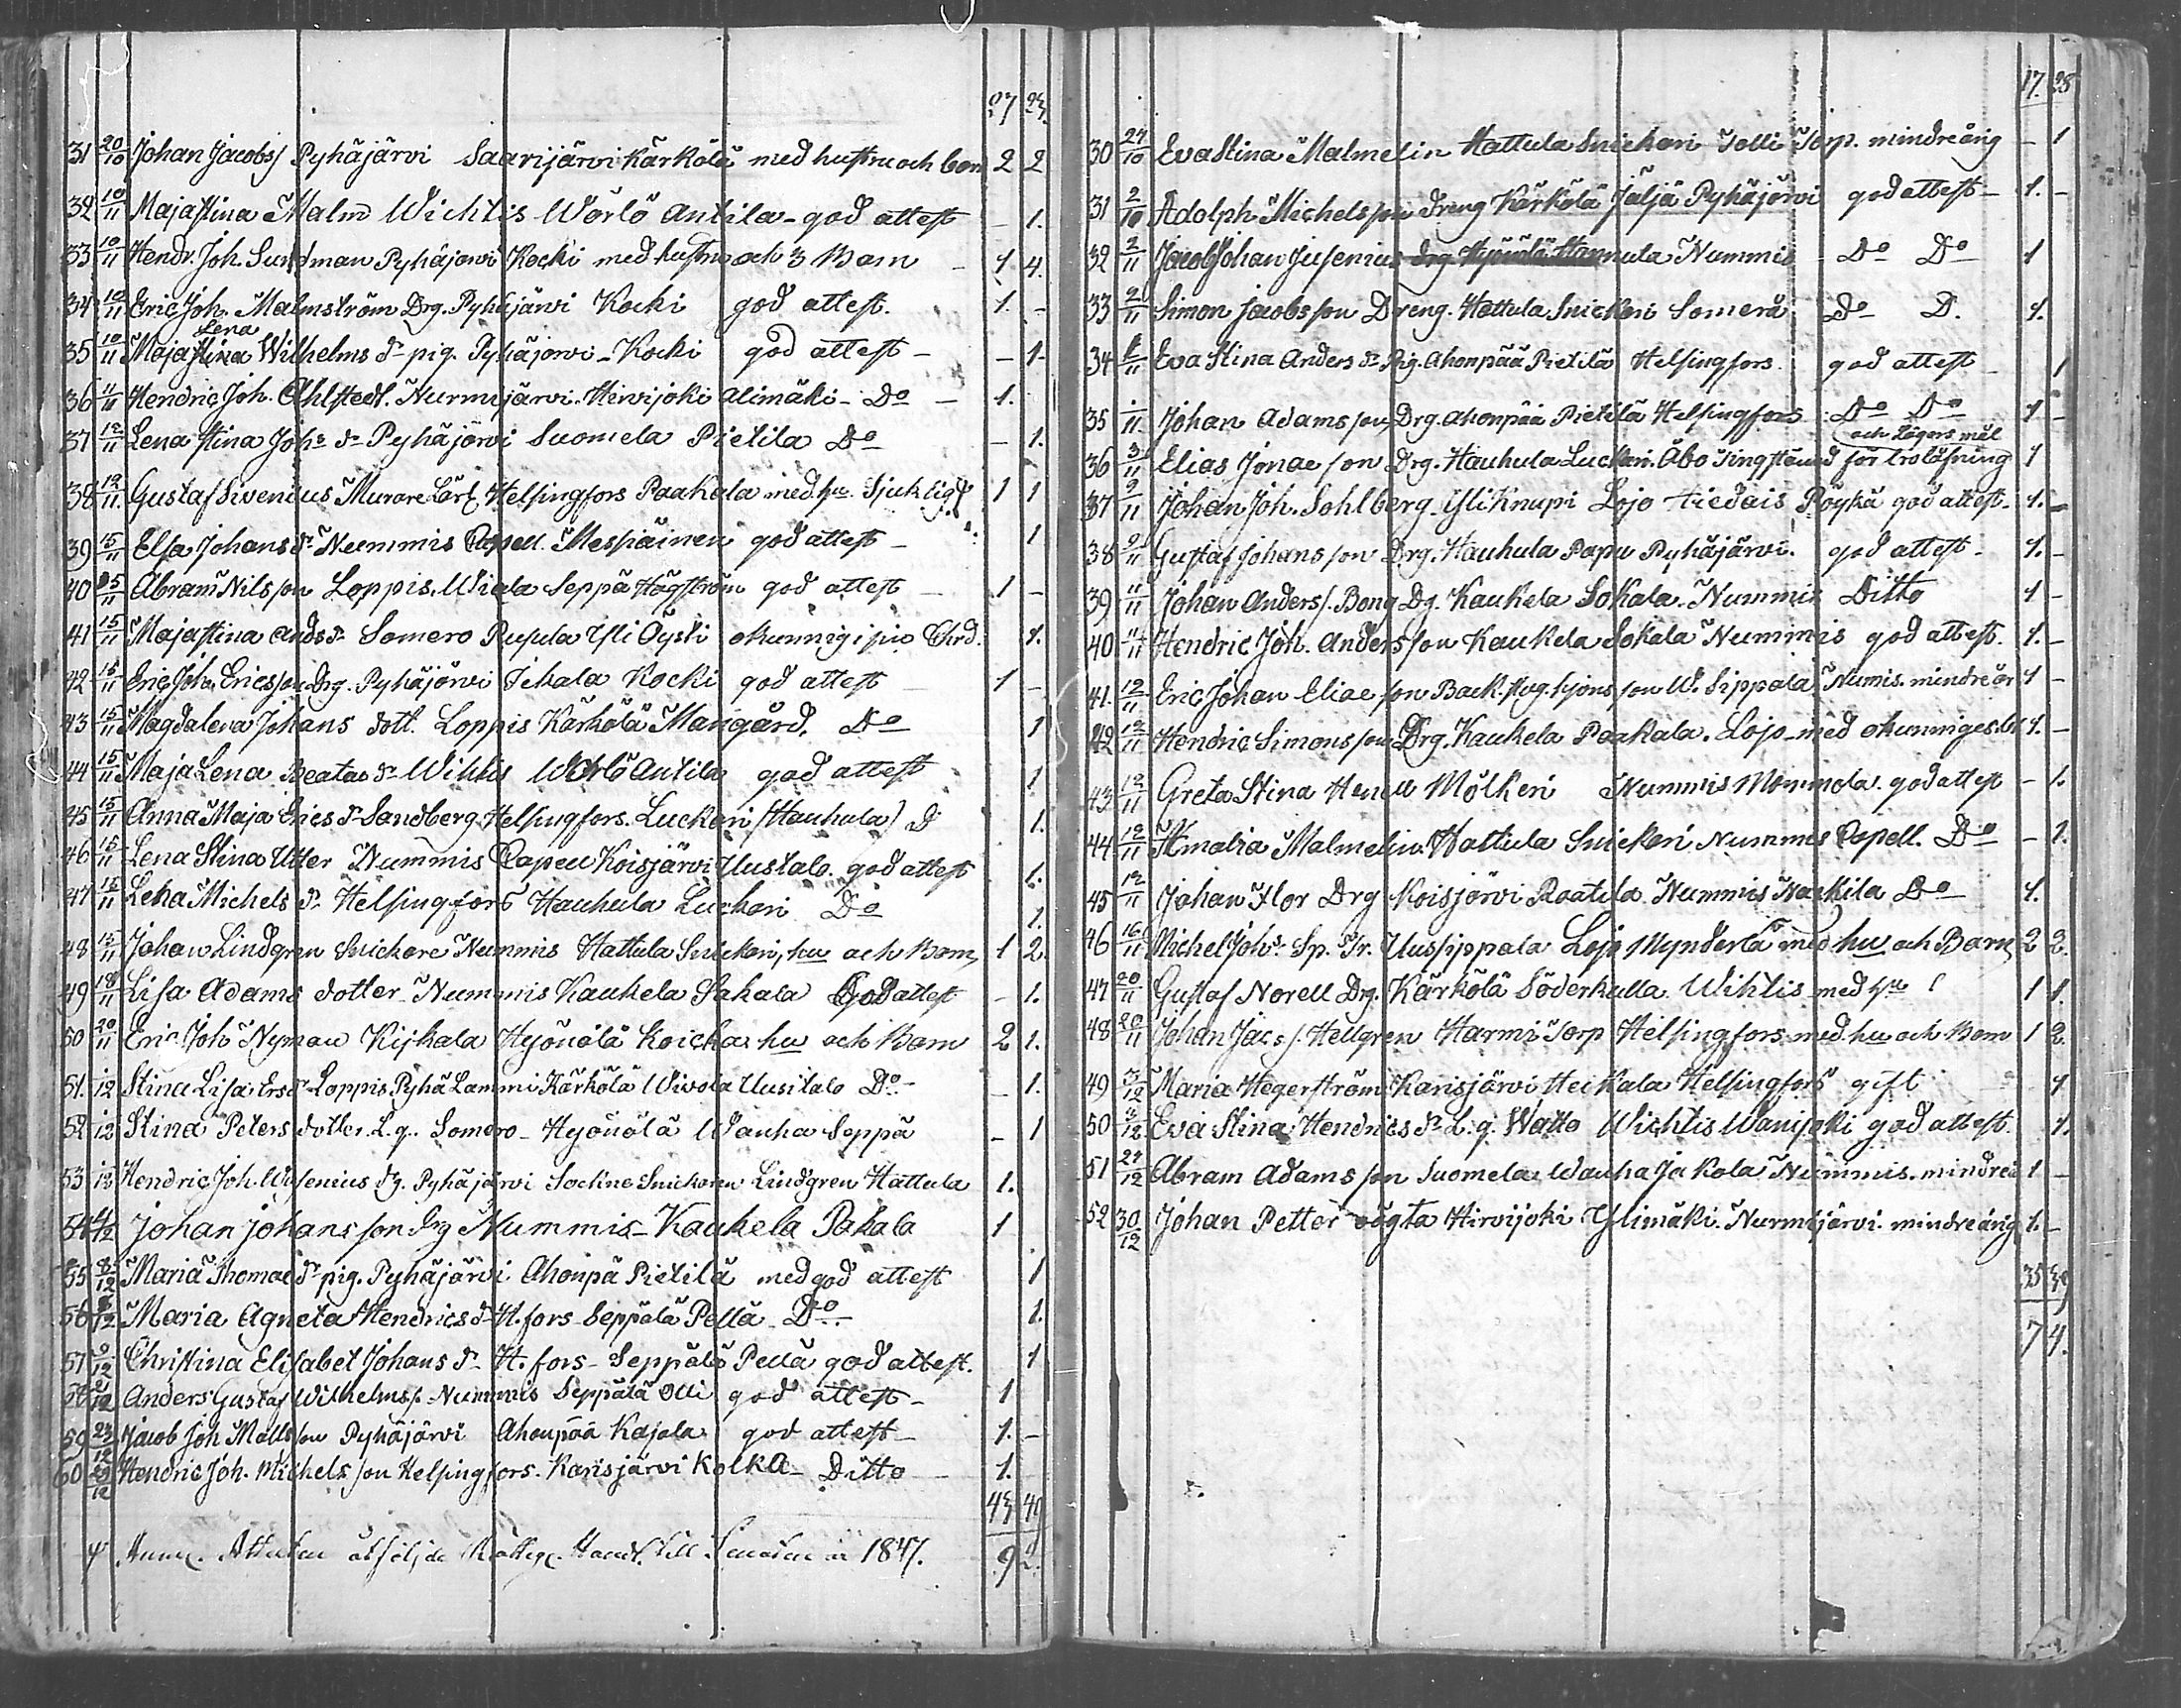 27 24.
31 20/10 Johan Jacobs/ Pyhäjärvi Saarijärvi Kärkölä med hustru och barn 2 2
32 10/11 Maja Stina Malm Wichtis Wörlö Antila - god attest - 1.
33 10/11 Hendr. Joh. Sundman Pyhäjärvi Kocki med hustru och 3 Barn - 1 4.
34 10/11 Eric Joh. Malmström Drg. Pyhäjärvi Kocki god attest. 1. -
Lena
35 10/11 Maja Stina Wilhelms dr pig. Pyhäjärvi - Kocki god attest - - 1-
36 11/11 Hendric Joh. Ahlstedt. Nurmijärvi. Hirvijoki Alimäki - Do - 1.
37 12/11 Lena Stina Johs dr Pyhäjärvi Suomela Pietila Do - 1.
38 12/11 Gustaf Sivenius Murare Lärl. Helsingfors Paakala med hu. Sjuklig 1 1
39 15/11 Elsa Johans dr Nummis Capell. Mespäinen god attest - 1
40 15/11 Abram Nilsson Loppis. Wiala Seppä Högström god attest - 1 -
41 15/11 Maja Stina Ands dr Somero Pusula Yli Öysti okunnig i sin Chrd. 1.
42 15/11 Eric Joh. Ericsson Drg. Pyhäjärvi Ickala Kocki god attest - 1 -
43 15/11 Magdalena Johans dott. Loppis Kärkölä Marigård. Do 1
44 15/11 Maja Lena Beatas dr Wihtis Wörlö Antila god attest 1
45 15/11 Anna Maja Erics dr Sandberg Helsingfors. Luckari (Hauhula) D 1.
46 15/11 Lena Stina Utter Nummis Capell Koisjärvi Uustalo. god attest 1.
47 15/11 Lena Michels dr Helsingfors Hauhula Luckari Do 1.
48 15/11 Johan Lindgren Snickare Nummis Hattula Snickari, hu och Barn, 1 2.
49 18/11 Lisa Adams dotter Nummis Kaukela Sakala God attest - 1.
50 20/11 Eric Joh Nyman Kijkala Hyönölä Koicka hu och Barn 2 1.
51. 1/12 Stina Lisa Ers dr Loppis Pyhä Lammi Kärkölä Wivola Uusitalo Do - - 1.
52 1/12 Stina Peters dotter. L. q. Somero - Hyönölä Wanha Seppä - 1
53 1/12 Hendric Joh. Wisenius dg. Pyhäjärvi Sockne Snickaren Lindgren Hattula 1.
54 4/12 Johan Johansson drg Nummis - Kaukela Pakala 1
55 8/12 Maria Thomae dr pig. Pyhäjärvi Ahonpä Pietilä med god attest 1
56 8/12 Maria Agneta Hendrics dr H.fors - Seppälä Pellä - Do 1.
57 9/12 Christina Elisabet Johans dr H. fors - Seppälä Pellä god attest. 1
58 21/12 Anders Gustaf Wilhelms/. Nummis Seppälä Olli god attest - 1
59 23/12 Jacob Joh Mattsson Pyhäjärvi Ahonpää Kajala god attest - 1. -
60 29/12 Hendric Joh. Michelsson Helsingfors. Karisjärvi Kolka - Ditto - 1.
43 49
till 1847. 92.
17. 28
30 24/10 Eva Stina Malmelin Hattula Snickari Tolli Torp. mindreårig - 1
31 2/10 Adolph Michelsson dreng Kärkölä Jäljä Pyhäjärvi god attest - 1. -
32 2/11 Jacob Johan Jusenius drg Hyönölä Hannula Nummis Do Do 1
33 2/11 Simon Jacobsson Dreng. Hattula Snickari Somerä Do D. 1.
34 1/11 Eva Stina Anders dr Pig. Ahonpää Pietilä Helsingfors. god attest - 1
35 1/11 Johan Adamsson, Drg. Ahonpää Pietilä Helsingfors Do Do 1 -
och Lägers mål
36 3/11 Elias Jonae son Drg. Hauhula Luckari. Åbo Tingstämd för trolofning 1
37 9/11 Johan Joh. Sohlberg. Yli Knupi Lojo Röykä god attest. 1. -
38 9/11 Gustaf Johansson Drg. Hauhula Papu Pyhäjärvi. god attest. 1. -
39 11/11 Johan Anders/. Bong Dg. Kaukela Sokala. Nummis Ditto 1 -
40 11/11 Hendric Joh. Andersson Kaukela Sokala Nummis god attest. 1. -
41. 12/11 Eric Johan Eliae son Back. W. Sippala Numis. mindreår 1 -
42 12/11 Hendric Simonsson Drg. Kaukela Paakala. Lojo - med okunniges. 1. -
43 12/11 Greta Stina Henell Mölkeri Nummis Mommola. god attest - 1.
44 12/11 Amalia Malmelin. Hattula Snickari Nummis Capell. Do - 1.
45 12/11 Johan Flor Drg Koisjärvi Raatila Nummis Nackila Do 1.
46 16/11 Michel Johs. Sp. Tr. Uussippala Lojo Mynderlä med hu och Barn 2 2.
47 20/11 Gustaf Norell Drg. Kärkölä Söderkulla Wihtis med hu 1 1.
48 20/11 Johan Jac. s/. Hellgren Harmi Torp Helsingfors med. hu och Barn 1 2.
49 3/12 Maria Hegerström Karisjärvi Heikala Helsingfors gift 1
50 3/12 Eva Stina Hendrics dr L. q. Watto Wichtis Wanjoki god attest. 1.
51 24/12 Abram Adamsson Suomela Wanha Jakola Nummis. mindreå 1 -
52 30/12 Johan Petter oägta Hirvijoki Ylimäki. Nurmijärvi. mindreårig 1. -
35 39
74.